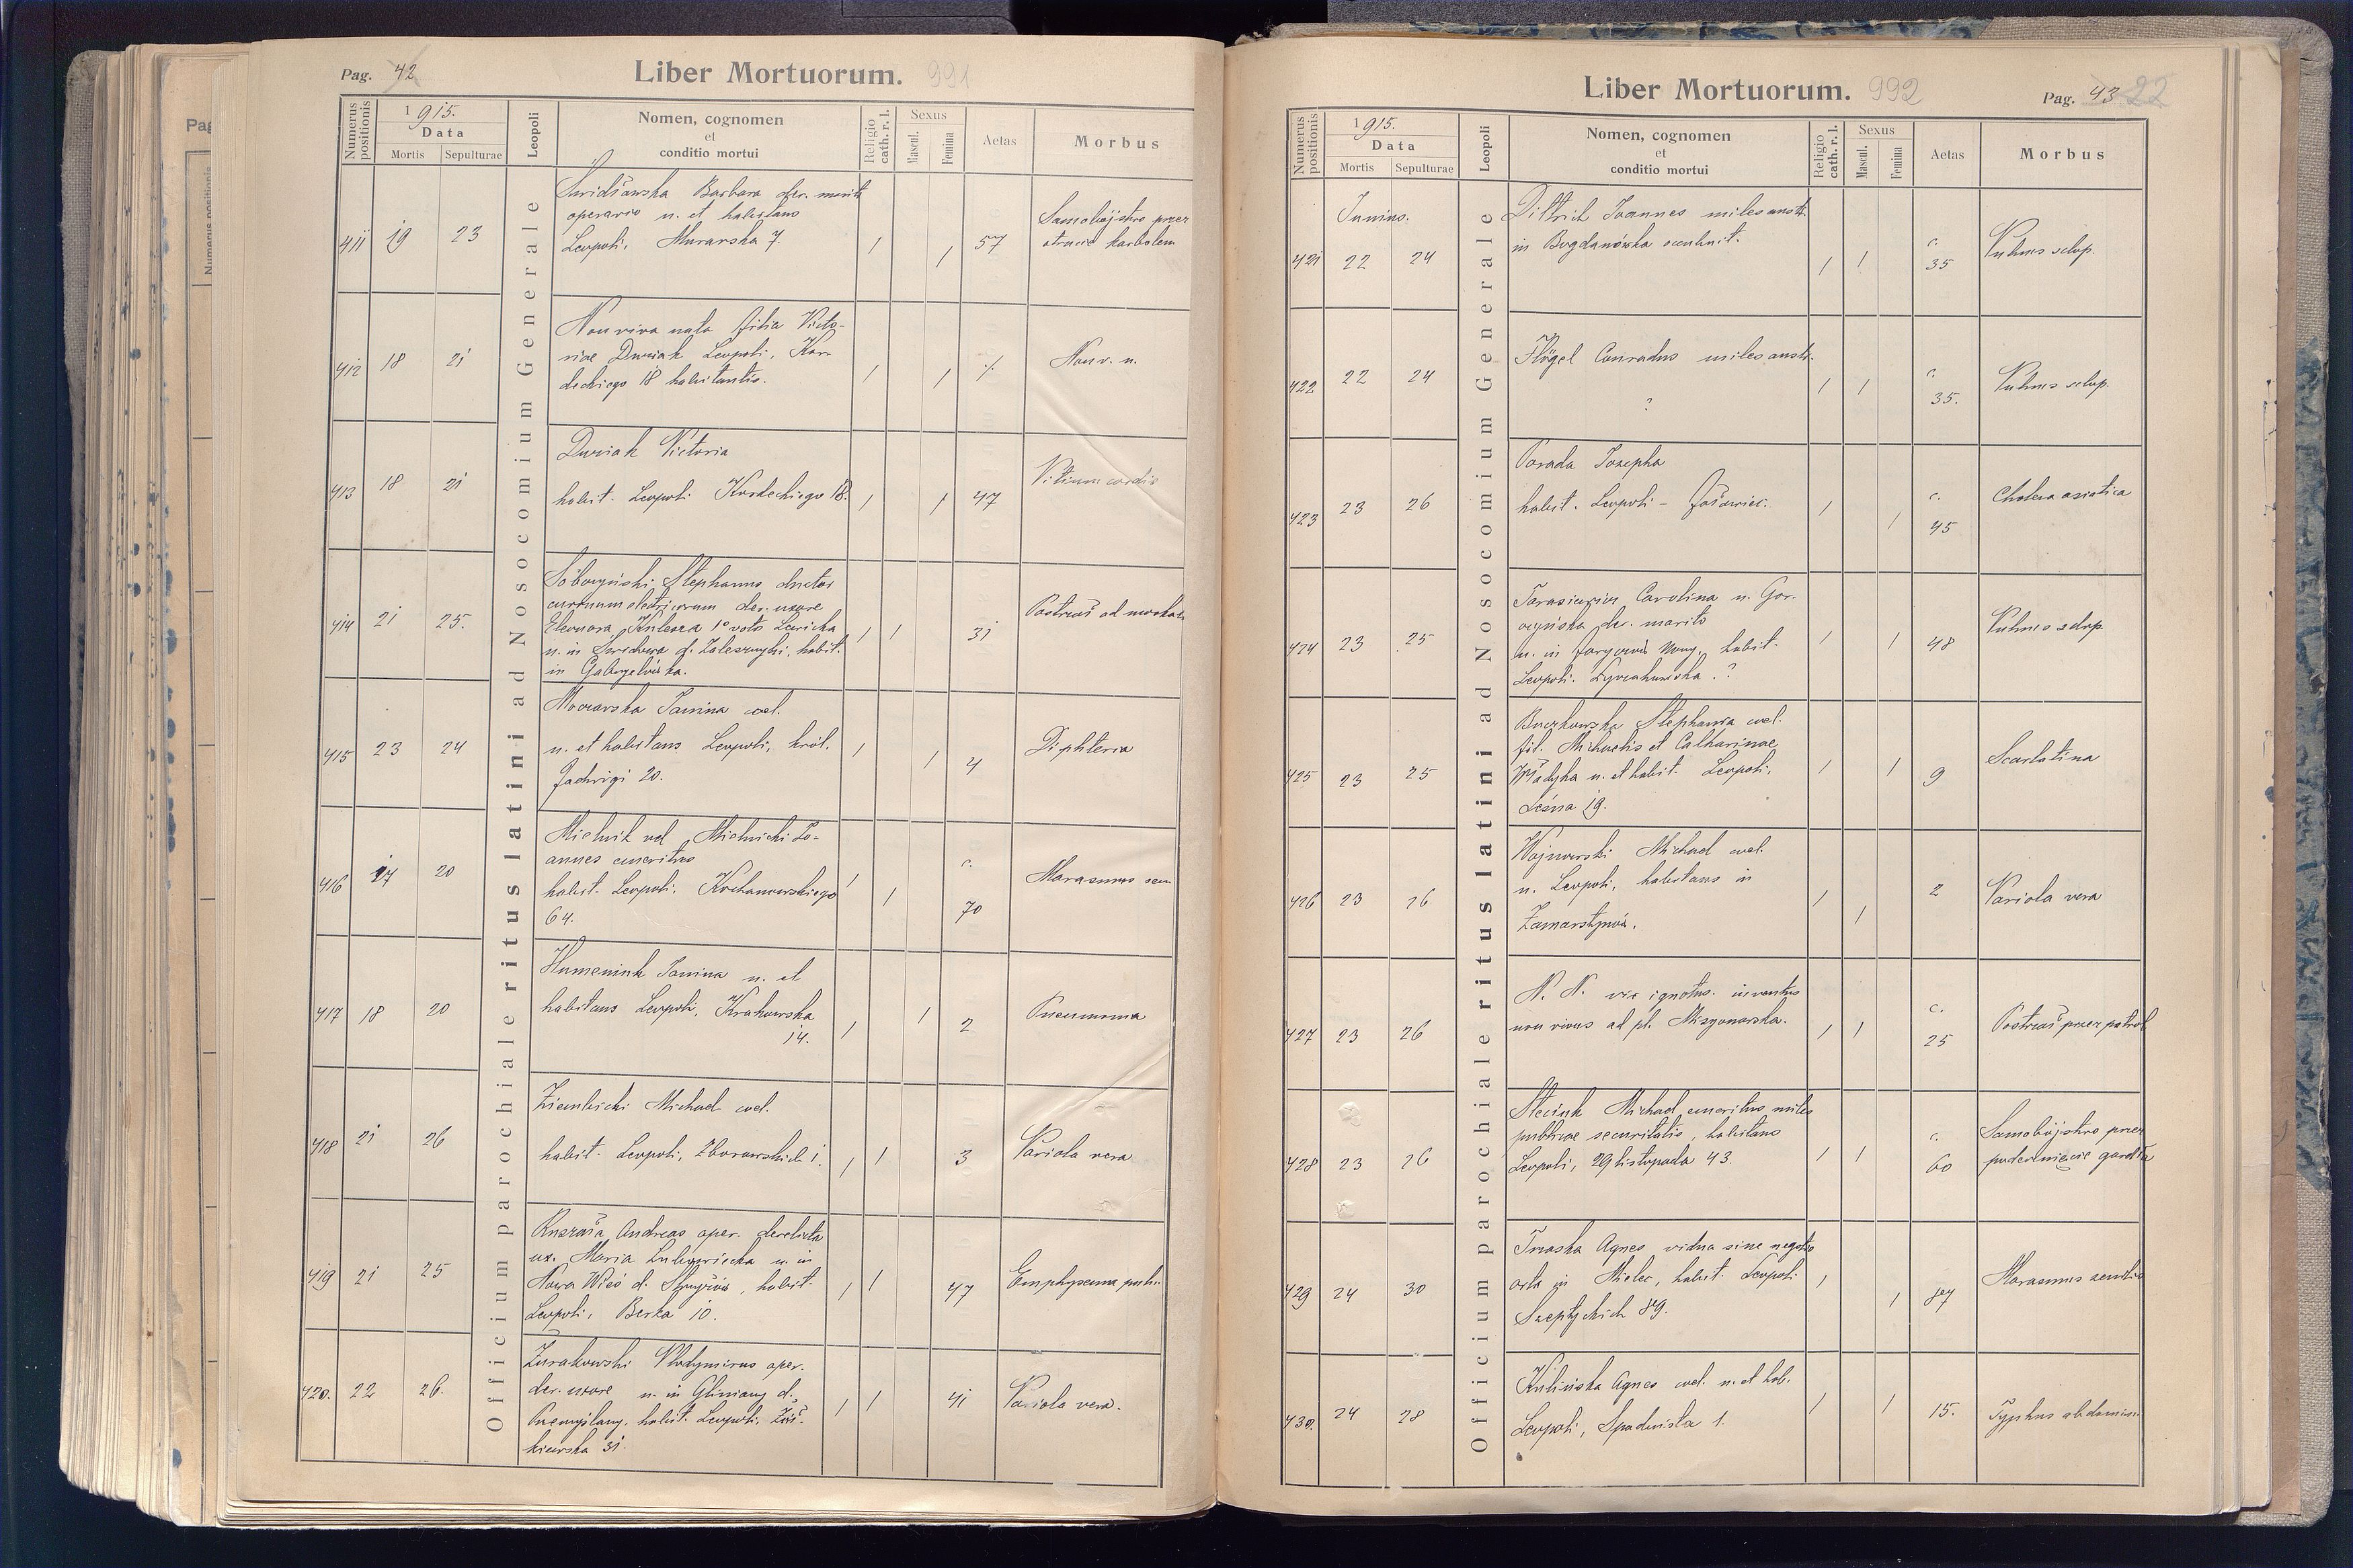 Pag. 42
Liber Mortuorum. 991
Numerus positionis
1915.
Data
Mortis Sepulturae
Leopoli
Nomen, cognomen
et
conditio mortui
Religio
cath. r. l.
Sexus
Mascul.
Femina
Aetas
Morbus
Officium parochiale ritus latini ad Nosocomium Generale
411 19 23
Barbara der. marito
operario n. et habitans
Leopoli, Murarska 7.
1 1 57
Samobójstwo przez
otrucie karbolem
412 18 21
Non viva nata filia Victo-
riae Duziak Leopoli, Kor-
deckiego 18 habitantis.
1 1 %
Non v. n.
413 18 21
Duziak Victoria
habit. Leopoli Kordeckiego 18.
1 1 47
Vitium cordis
414 21 25.
Stephanus ductor
curruum electricorum der. uxore
Eleonora Kulesza 1° voto
n. in d. Zaleszczyki, habit.
in Gabryelówka.
1 1 31
Postrzał
415 23 24
Janina coel.
n. et habitans Leopoli, król.
Jadwigi 20.
1 1 4
Diphteria
416 17 20
Mielnik vel Mielnicki Jo-
annes emeritus
habit. Leopoli, Kochanowskiego
64.
1 1 c. 70
Marasmus sen
417 18 20
Humeniuk Janina n. et
habitans Leopoli, Krakowska
14.
1 1 2
Pneumonia
418 21 26
Ziembicki Michael coel.
habit. Leopoli, Zborowskich 1.
1 1 3
Variola vera
419 21 25
Andreas oper. derelicta
ux. Maria n. in
Nowa Wieś d. habit.
Leopoli, Berka 10.
1 1 47
Emphysema pulm.
420. 22 26.
Żurakowski Vlodymirus oper.
der. uxore n. in Gliniany d.
Przemyślany, habit. Leopoli, Żół-
kiewska 31.
1 1 41
Variola vera.
Liber Mortuorum. 992
Pag. 43 22
Numerus positionis
1915.
Data
Mortis Sepulturae
Leopoli
Nomen, cognomen
et
conditio mortui
Religio
cath. r. l.
Sexus
Mascul.
Femina
Aetas
Morbus
Officium parochiale ritus latini ad Nosocomium Generale
Junius.
421 22 24
Dittrich Joannes miles austr.
in Bogdanówka occubuit.
1 1 c. 35
Vulnus sclop.
422 22 24
Flögel Conradus miles austr.
?
1 1 c. 35.
Vulnus sclop.
423 23 26
Porada Josepha
habit. Leopoli - Jałowiec.
1 1 c. 45
Cholera asiatica
424 23 25
Tarasiewicz Carolina n. Gor-
czyńska der. marito
n. in Jaryczów Nowy, habit.
Leopoli. Łyczakowska ?
1 1 48
Vulnus sclop.
425 23 25
Buczkowska Stephania coel.
fil. Michaelis et Catharinae
Władyka n. et habit. Leopoli,
Leśna 19.
1 1 9
Scarlatina
426 23 26
Wojnowski Michael coel.
n. Leopoli, habitans in
Zamarstynów.
1 1 2
Variola vera
427 23 26
N. N. vir ignotus. inventus
non vivus ad pl. Misyonarska.
1 1 c. 25
Postrzał przez patrol
428 23 26
Steciuk Michael emeritus miles
publicae securitatis, habitans
Leopoli, 29 listopada 43.
1 1 c. 60
Samobójstwo przez
poderżnięcie gardła
429 24 30
Agnes vidua sine negotio
orta in Mielec, habit. Leopoli
Szeptyckich 89.
1 1 87
Marasmus senilis
430. 24 28
Kulińska Agnes coel. n. et hab.
Leopoli, Spadzista 1.
1 1 15.
Typhus abdomin.